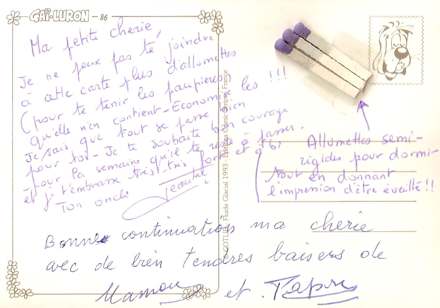 GAI-LURON - 86
Ma petite chérie,
Je ne peux pas te joindre
à cette carte plus d'allumettes
(pour te tenir les paupières
qu'elle n'en contient - Economise les !!!
Je sais que tout se passe bien
pour toi - Je te souhaite bon courage
pour les semaines qu'il te reste à
et je t'embrasse très très fort
Ton oncle
Allumettes semi-
rigides pour dormir
tout en donnant
l'impression d'être éveillée !!
Bonne continuation ma chérie
avec de bien tendres baisers de
Mamou et Papou